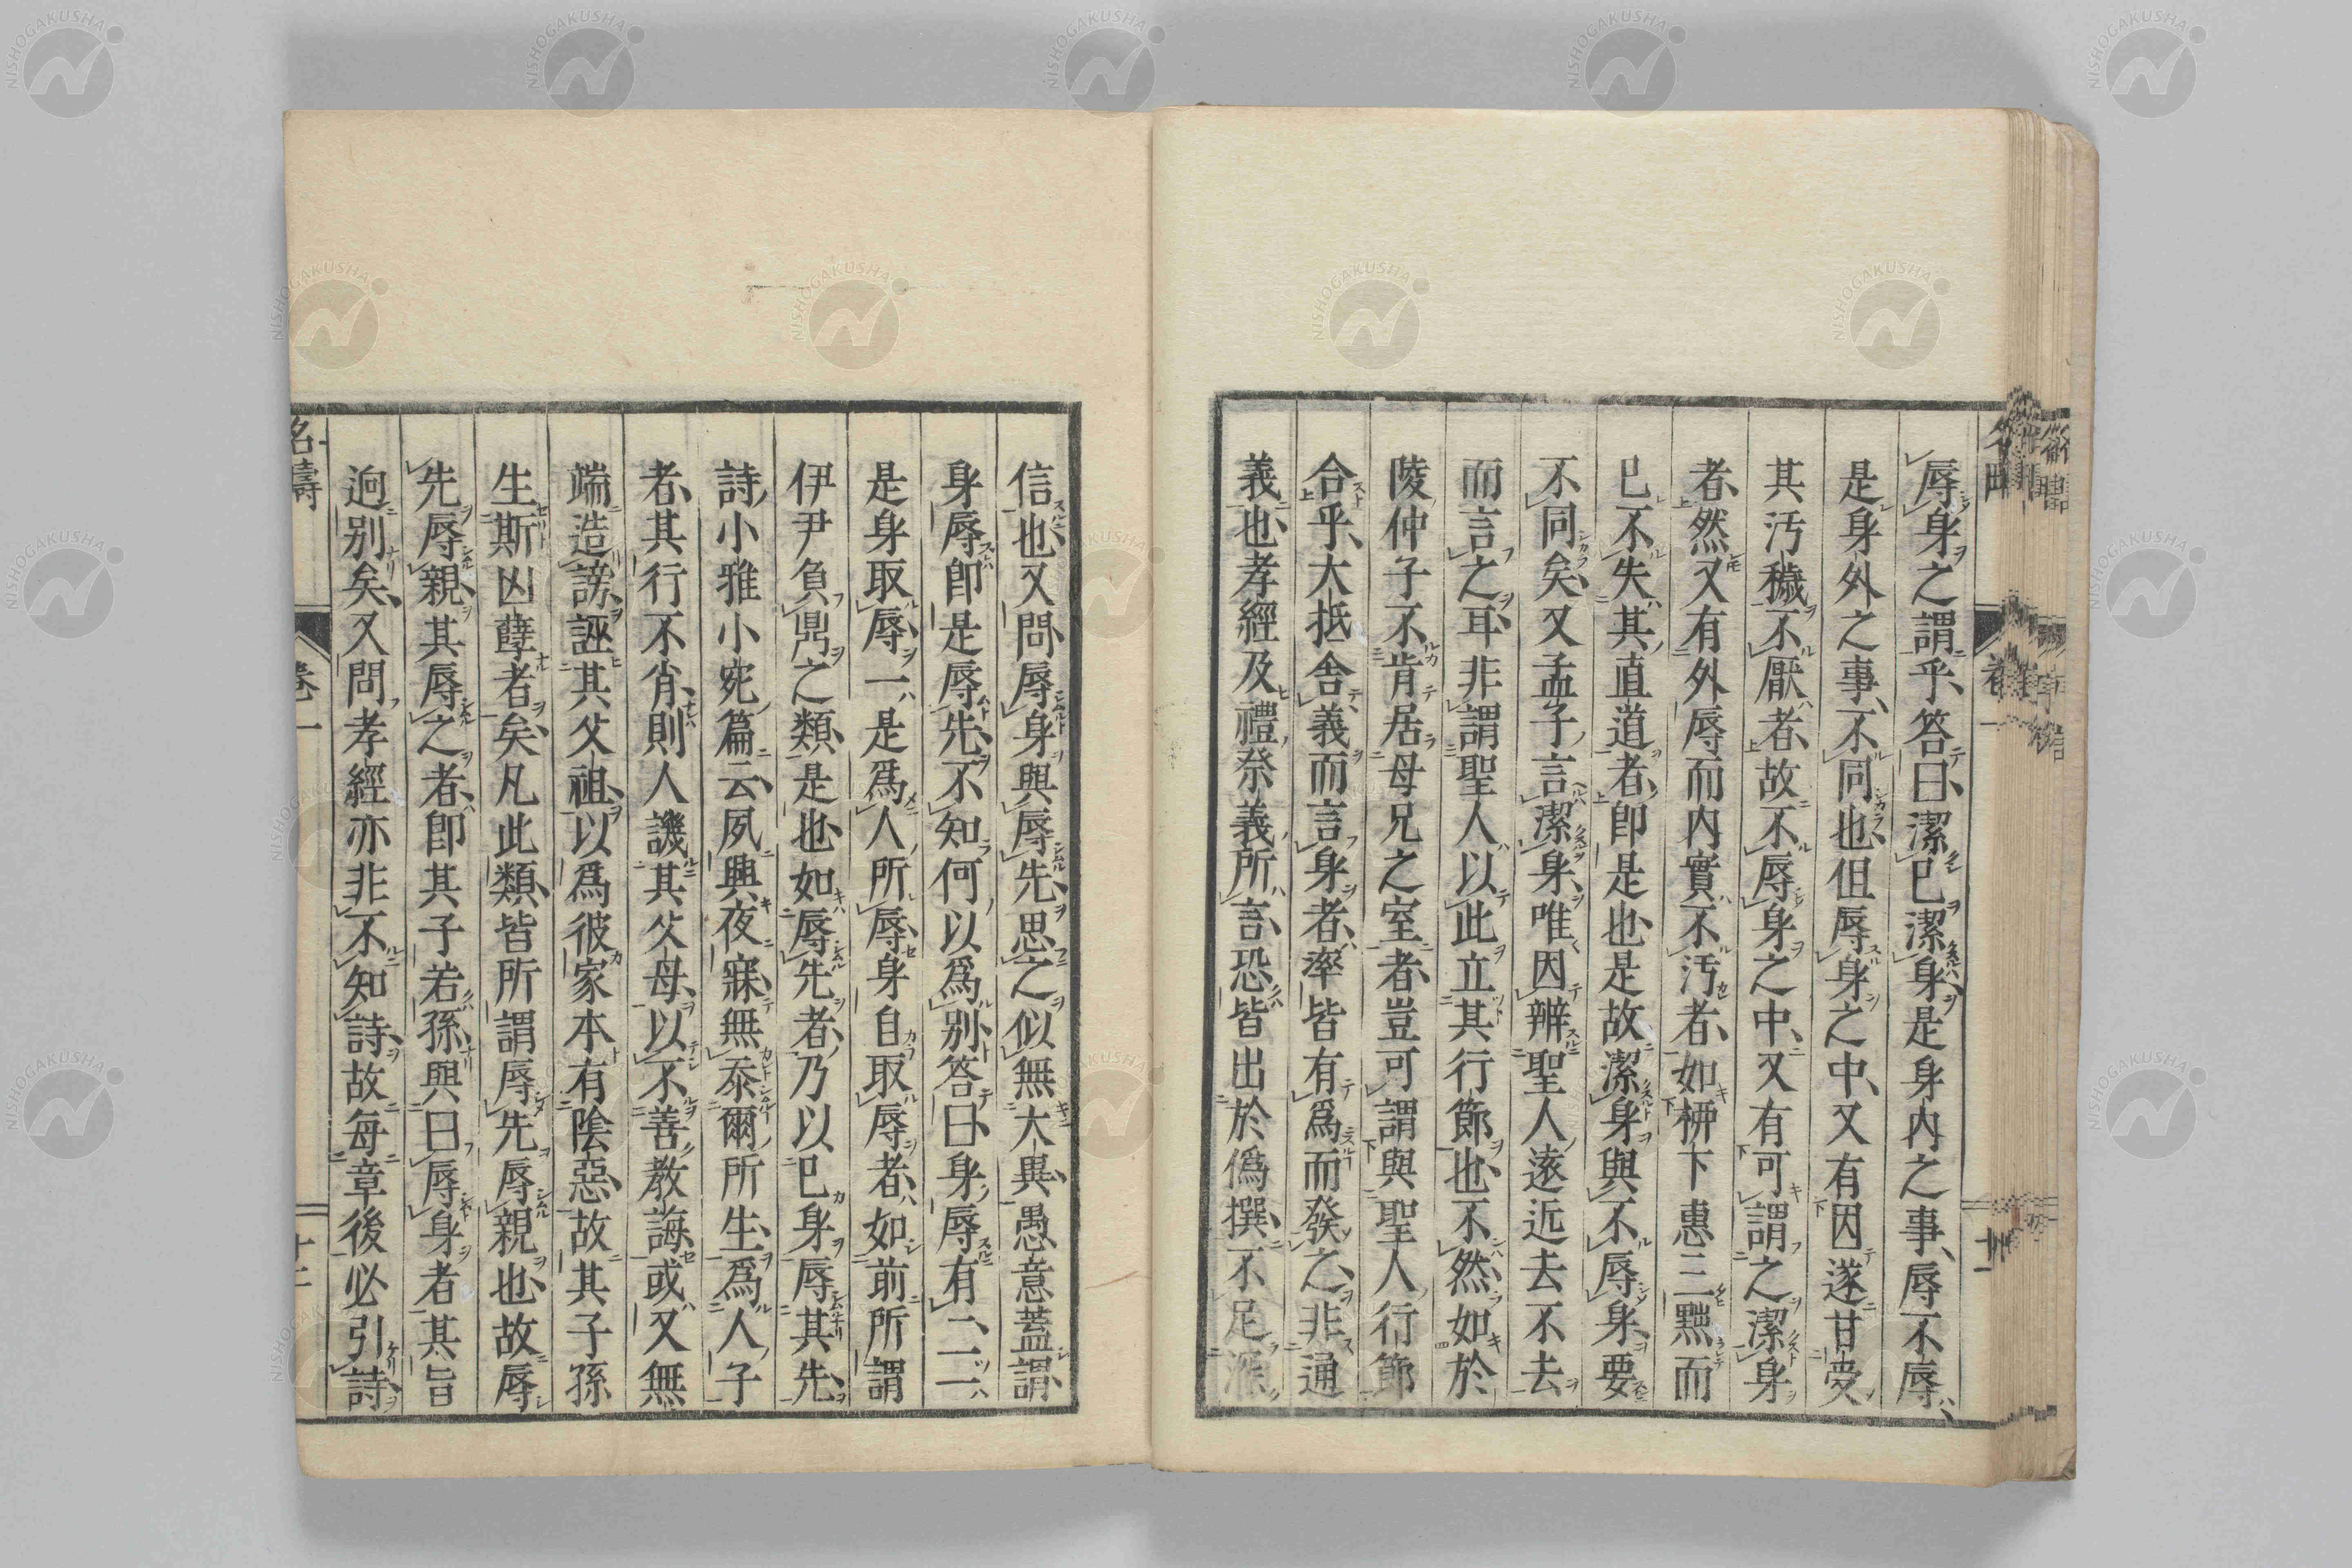 辱身之謂乎、答曰、潔已潔身、是身内之事、辱不辱、
是身外之事、不同也、但辱身之中、又有因遂甘受
其汚穢不厭者、故不辱身之中、又有可謂之潔身
者、然又有外辱而内實不汚者、如柳下惠三黜而
已不失其直道者、即是也、是故潔身與不辱身、要
不同矣、又孟子言潔身、唯因辨聖人遠近去不去
而言之耳、非謂聖人以此立其行節也、不然、如於
陵仲子不肯居母兄之室者、豈可謂與聖人行節
合乎、大抵舎義而言身者、率皆有爲而發之、非通
義也、孝經及禮祭義所言、恐皆出於僞撰、不足深
信也、又問、辱身與辱先、思之似無大異、愚意蓋謂、
身辱即是辱先、不知何以爲別、答曰、身辱有二、一
是身取辱、一是爲人所辱、身自取辱者、如前所謂
伊尹負鼎之類、是也、如辱先者、乃以已身辱其先、
詩小雅小宛篇云、夙興夜寐、無忝爾所生、爲人子
者、其行不肖、則人譏其父母、以不善教誨、或又無
端造謗、誣其父祖、以爲彼家本有陰惡、故其子孫
生斯凶孽者矣、凡此類、皆所謂辱先辱親也、故辱
先辱親、其辱之者、即其子若孫、與曰辱身者其旨
迥別矣、又問孝經亦非不知詩、故毎章後必引詩
名疇
卷一
十二